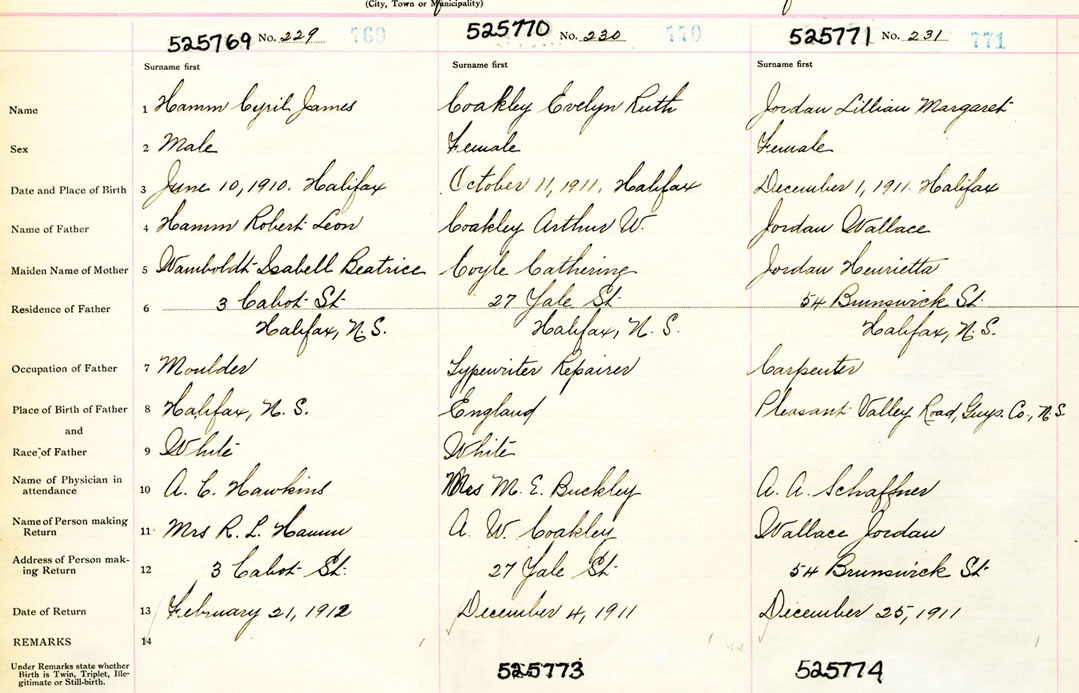 (City, Town or Municipality)
525769 No. 229 769 525770 No. 230 770 525771 No. 231 771
Surname first Surname first Surname first
Name 1 Hamm Cyril James Coakley Evelyn Ruth Jordan Lillian Margaret
Sex 2 Male Female Female
Date and Place of Birth 3 June 10, 1910. Halifax October 11, 1911. Halifax December 1, 1911. Halifax
Name of Father 4 Hamm Robert Leon Coakley Arthur W. Jordan Wallace
Maiden Name of Mother 5 Wamboldt Isabell Beatrice Coyle Catherine Jordan Henrietta
Residence of Father 6 3 Cabot St 27 Yale St 54 Brunswick St
Halifax, N.S. Halifax, N.S. Halifax, N.S.
Occupation of Father 7 Moulder Typewriter Repairer Carpenter
Place of Birth of Father 8 Halifax, N.S. England Pleasant Valley Road, Guys. Co., N.S.
and
Race of Father 9 White White
Name of Physician in
attendance 10 A. C. Hawkins Mrs M. E. Buckley A. A. Schaffner
Name of Person making
Return 11 Mrs R. L. Hamm A. W. Coakley Wallace Jordan
Address of Person mak-
ing Return 12 3 Cabot St. 27 Yale St 54 Brunswick St
Date of Return 13 February 21, 1912 December 4, 1911 December 25, 1911
REMARKS 14
Under Remarks state whether
Birth is Twin, Triplet, Ille-
gitimate or Still-birth.
525773 525774